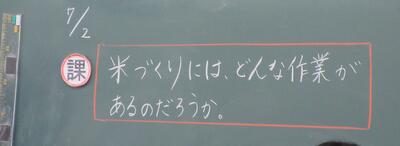 7/2
課
米づくりには、どんな作業が
あるのだろうか。